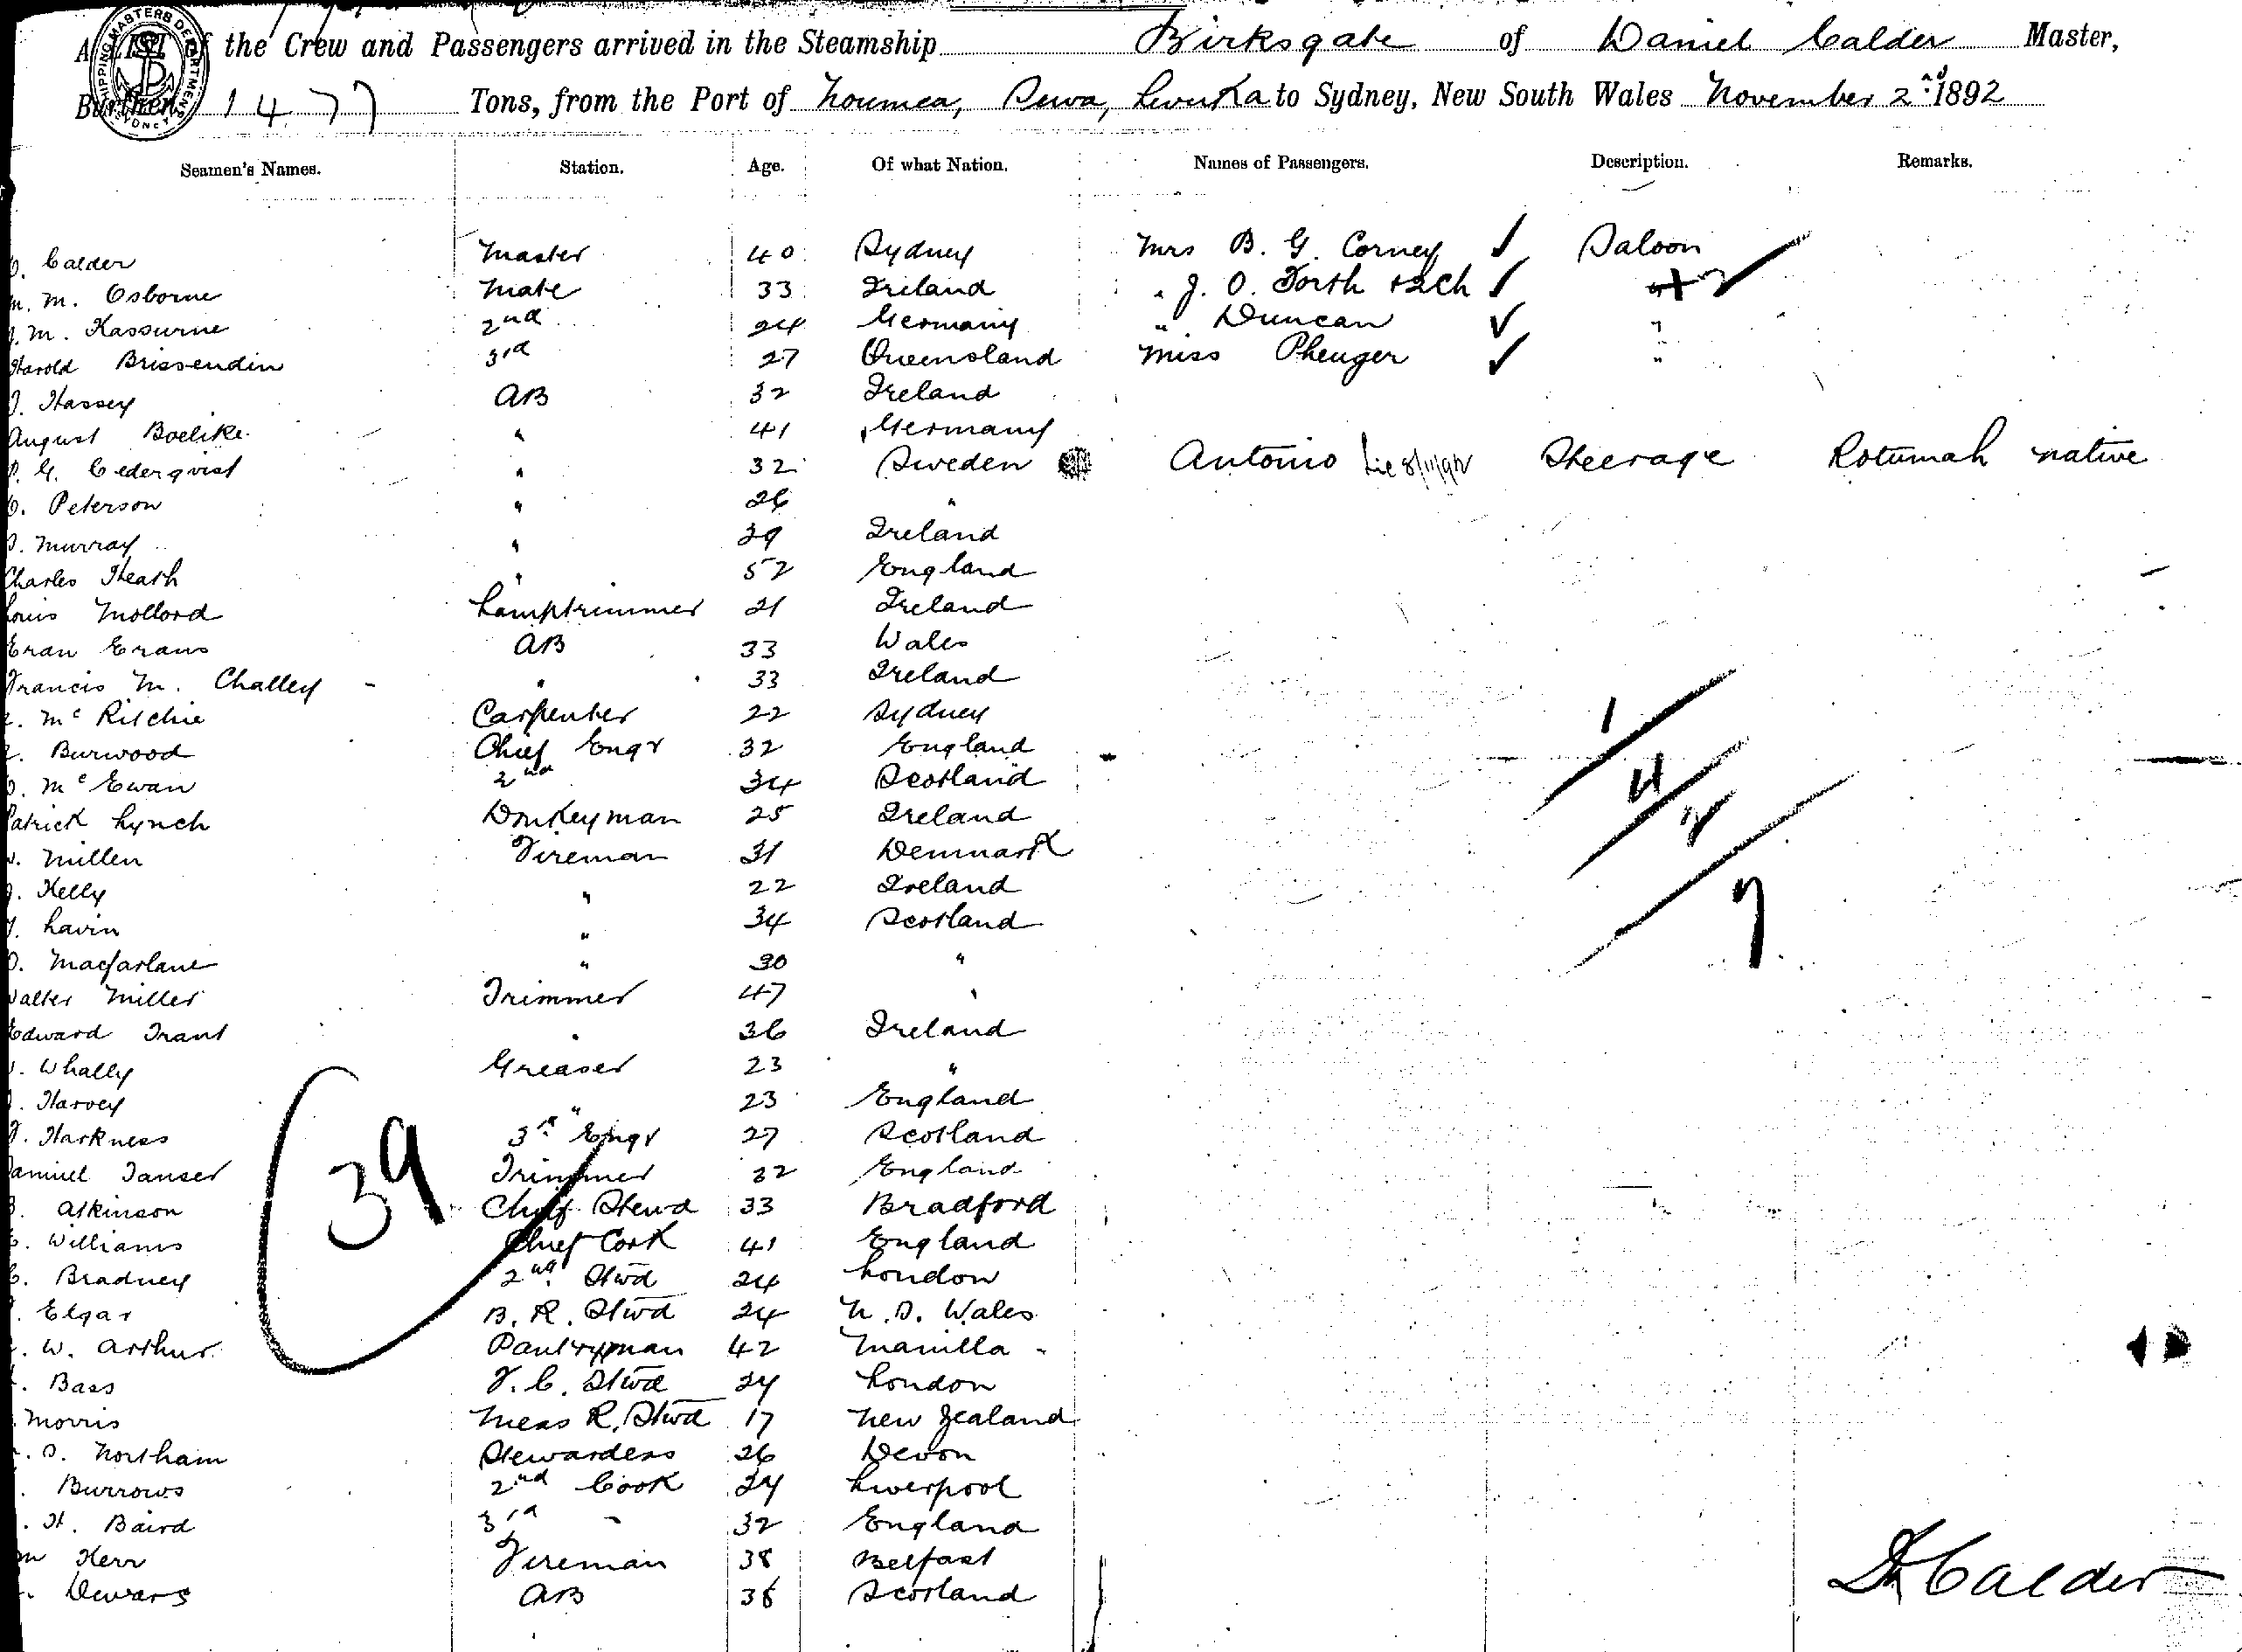 A LIST of the Crew and Passengers arrived in the Steamship Birksgate of Daniel Calder Master,
Burthen 1477 Tons, from the Port of Noumea, Suva, Levuka to Sydney, New South Wales November 2nd 1892
SHIPPING MASTERS DEPARTMENT SYDNEY
Seamen's Names. Station. Age. Of what Nation. Names of Passengers. Description. Remarks.
Calder Master 40 Sydney Mrs B. G. Corney ✓ Saloon
M. Osborne Mate 33 Ireland " J. O. Forth + 2 Ch ✓ "
M. Kassurne 2nd 24 Germany " Duncan ✓ "
Harold Brissendin 3rd 27 Queensland Miss Pheuger ✓ "
Hassey AB 32 Ireland
August Boelike " 41 Germany
G. Cederqvist " 32 Sweden Antonio Steerage Rotumah native
Peterson " 26 "
Murray " 39 Ireland
Charles Heath " 52 England
Louis Mollord Lamptrimmer 21 Ireland
Evan Evans AB 33 Wales
Francis M. Challey " 33 Ireland
McRitchie Carpenter 22 Sydney
Burwood Chief Engr 32 England
McEwan 2nd 34 Scotland
Patrick Lynch Donkeyman 25 Ireland
Millen Fireman 31 Denmark
Kelly " 22 Ireland
Lavin " 34 Scotland
Macfarlane " 30 "
Walter Miller Trimmer 47 "
Edward Trant " 36 Ireland
Whally Greaser 23 "
Harvey " 23 England
Harkness 3rd Engr 27 Scotland
Samuel Tanser Trimmer 32 England
Atkinson Chief Stewd 33 Bradford
Williams Chief Cook 41 England
Bradney 2nd Stwd 24 London
Elgar B. R. Stwd 24 N. S. Wales
W. Arthur Pantryman 42 Manilla
Bass F. C. Stwd 24 London
Morris Mess R. Stwd 17 New Zealand
S. Northam Stewardess 26 Devon
Burrows 2nd Cook 24 Liverpool
H. Baird 3rd " 32 England
Kerr Fireman 38 Belfast
Dewars AB 38 Scotland
39
1
4
2
7
D Calder